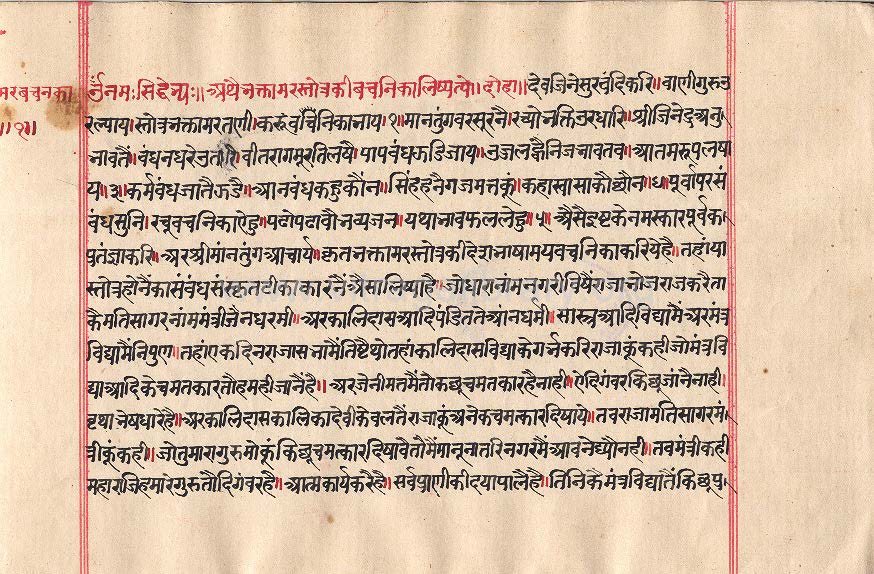 मरबचनका
॥१॥
र्ॐ नमः सिद्धेभ्यः॥ अथ भक्तामरस्तोत्रकी बचनिका लिष्यत्ये॥ दोहा॥ देवजिनेसुर वंदि करि। वाणी गुरु उ
रल्याय। स्तोत्र भक्तामर तणी। करूं वचनिका भाय। १॥ मानतुंग वर सूरनै। रच्यो भक्ति उर धारि। श्री जिनेंद्र अनु
भावतैं। बंधन धरे उतारि॥ वीतराग मूरति लषै। पाप बंध झडि जाय। उजल ह्वै निज भाव तब। आतम रूप लषा
य॥ ३॥ कर्म बंध जातैं झडै। आन बंध कहु कौंन। सिंह हनै गजमत्तकूं। कहा सुासा कौ 
बंध सुनि। रचूं वचनिका ऐहु। पढो पढावौ भव्य जन। यथा भाव फल लेहु॥ ५॥ अैसै इष्टके नमस्कार पूर्वक।
करि। अर श्री मांनतुंग आचार्य। कृत भक्तामर स्तोत्रकी देशभाषामय वचनिका करिये है॥ तहां या
स्तोत्र होनैंका संबंध संस्कृत टीकाकारनैं अैसा लिष्या है॥ जो धारा नांम नगरी विषैं राजा भोज राज करै ता
कै मतिसागर नांम मंत्री जैनधरमी॥ अर कालिदास आदि पंडित ते आंनधर्मी॥ सास्त्र आदि विद्यामैं अर मंत्र
विद्यामैं निपुण॥ तहां एक दिन राजा सभामैं तिष्टै थो तहां कालिदास विद्याके गर्भ करि राजाकूं कही जो मंत्रवि
द्या आदिके चमतकार तौ हमही जानैं है॥ अर जैनी मतमैं तौ कछू चमतकार है नाही॥ ऐ दिगंबर किछू जांनै नाही।
बृथा भेष धारे है॥ अर कालिदास कालिका देवीके बलतैं राजाकूं अनेक चमत्कार दिषाये॥ तब राजा मतिसागर मं
त्रीकूं कही॥ जो तुमारा गुरु मोकूं किछू चमत्कार दिषावै तौ मैं मानूं नातरि नगरमैं आवने द्यौ नही॥ तब मंत्री कही
महाराजि हमारे गुरु तौ दिगंबर है॥ आत्मकार्य करै है॥ सर्व प्राणीकी दया पालै है॥ तिनिकै मंत्रविद्यातैं किछू प्र।